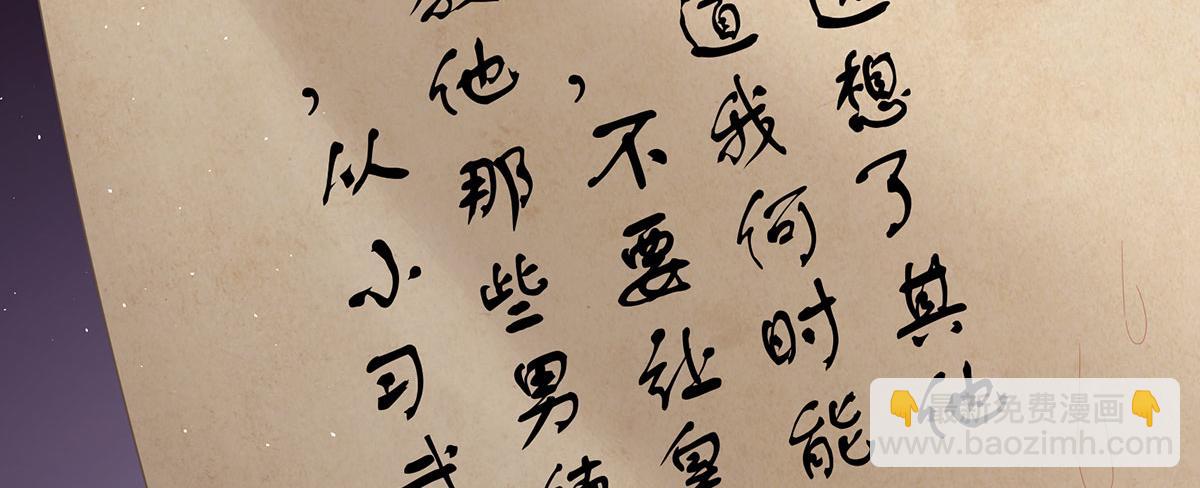 想了其他
道我何时能
，不要让皇
他那些男
，从小习武
👇最新免费漫画👇
www.baozimh.com